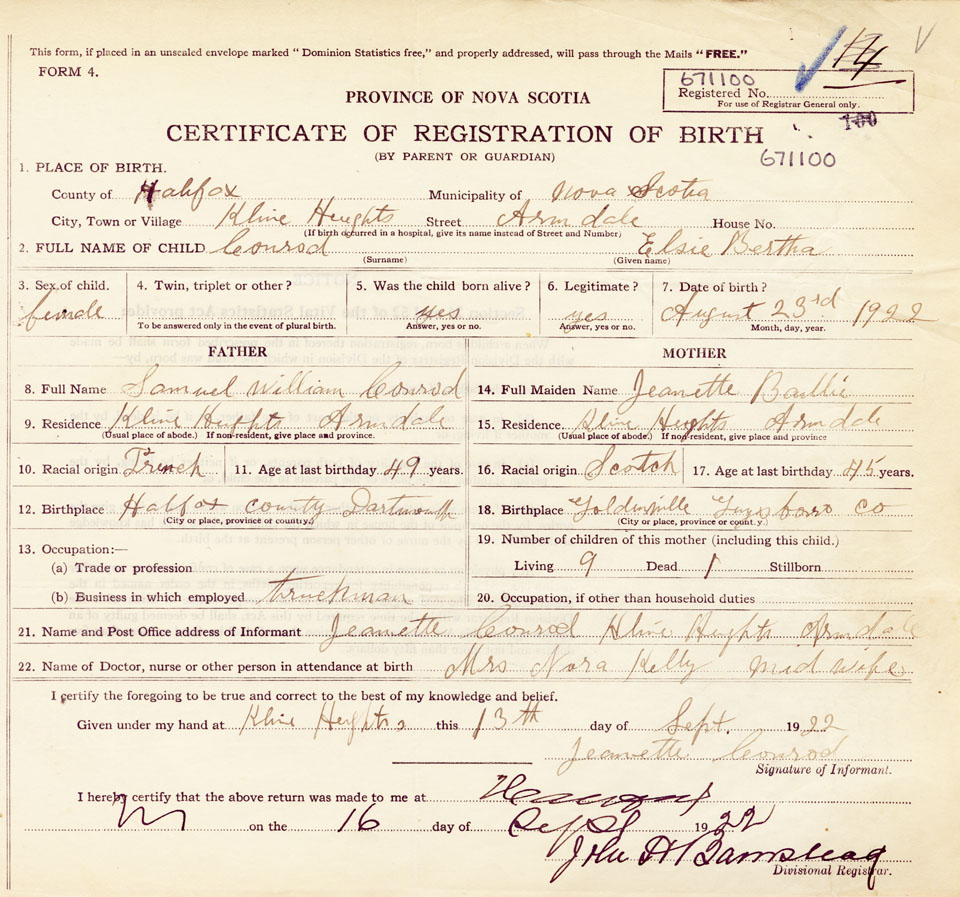 This form, if placed in an unsealed envelope marked "Dominion Statistics free," and properly addressed, will pass through the Mails "FREE."
FORM 4.
14
671100
Registered No.
For use of Registrar General only.
PROVINCE OF NOVA SCOTIA
100
CERTIFICATE OF REGISTRATION OF BIRTH
(BY PARENT OR GUARDIAN)
671100
1. PLACE OF BIRTH.
County of Halifax Municipality of Nova Scotia
City, Town or Village Kline Heights Street Armdale House No.
(If birth occurred in a hospital, give its name instead of Street and Number)
2. FULL NAME OF CHILD Conrod Elsie Bertha
(Surname) (Given name)
3. Sex of child. 4. Twin, triplet or other? 5. Was the child born alive? 6. Legitimate? 7. Date of birth?
female yes yes August 23rd 1922
To be answered only in the event of plural birth. Answer, yes or no. Answer, yes or no. Month, day, year.
FATHER MOTHER
8. Full Name Samuel William Conrod 14. Full Maiden Name Jeanette Baillie
9. Residence Kline Heights Armdale 15. Residence. Kline Heights Armdale
(Usual place of abode.) If non-resident, give place and province. (Usual place of abode.) If non-resident, give place and province
10. Racial origin French 11. Age at last birthday 49 years. 16. Racial origin Scotch 17. Age at last birthday 45 years.
12. Birthplace Halfax County Dartmouth 18. Birthplace Goldenville Guysboro Co
(City or place, province or country.) (City or place, province or country.)
13. Occupation:— 19. Number of children of this mother (including this child.)
(a) Trade or profession Living 9 Dead 1 Stillborn
(b) Business in which employed truckman 20. Occupation, if other than household duties
21. Name and Post Office address of Informant Jeanette Conrod Kline Heights Armdale
22. Name of Doctor, nurse or other person in attendance at birth Mrs Nora Kelly mid wife
I certify the foregoing to be true and correct to the best of my knowledge and belief.
Given under my hand at Kline Heights this 13th day of Sept. 1922
Jeanette Conrod
Signature of Informant.
I hereby certify that the above return was made to me at
on the 16 day of Sept 1922
John A Barnstead
Divisional Registrar.